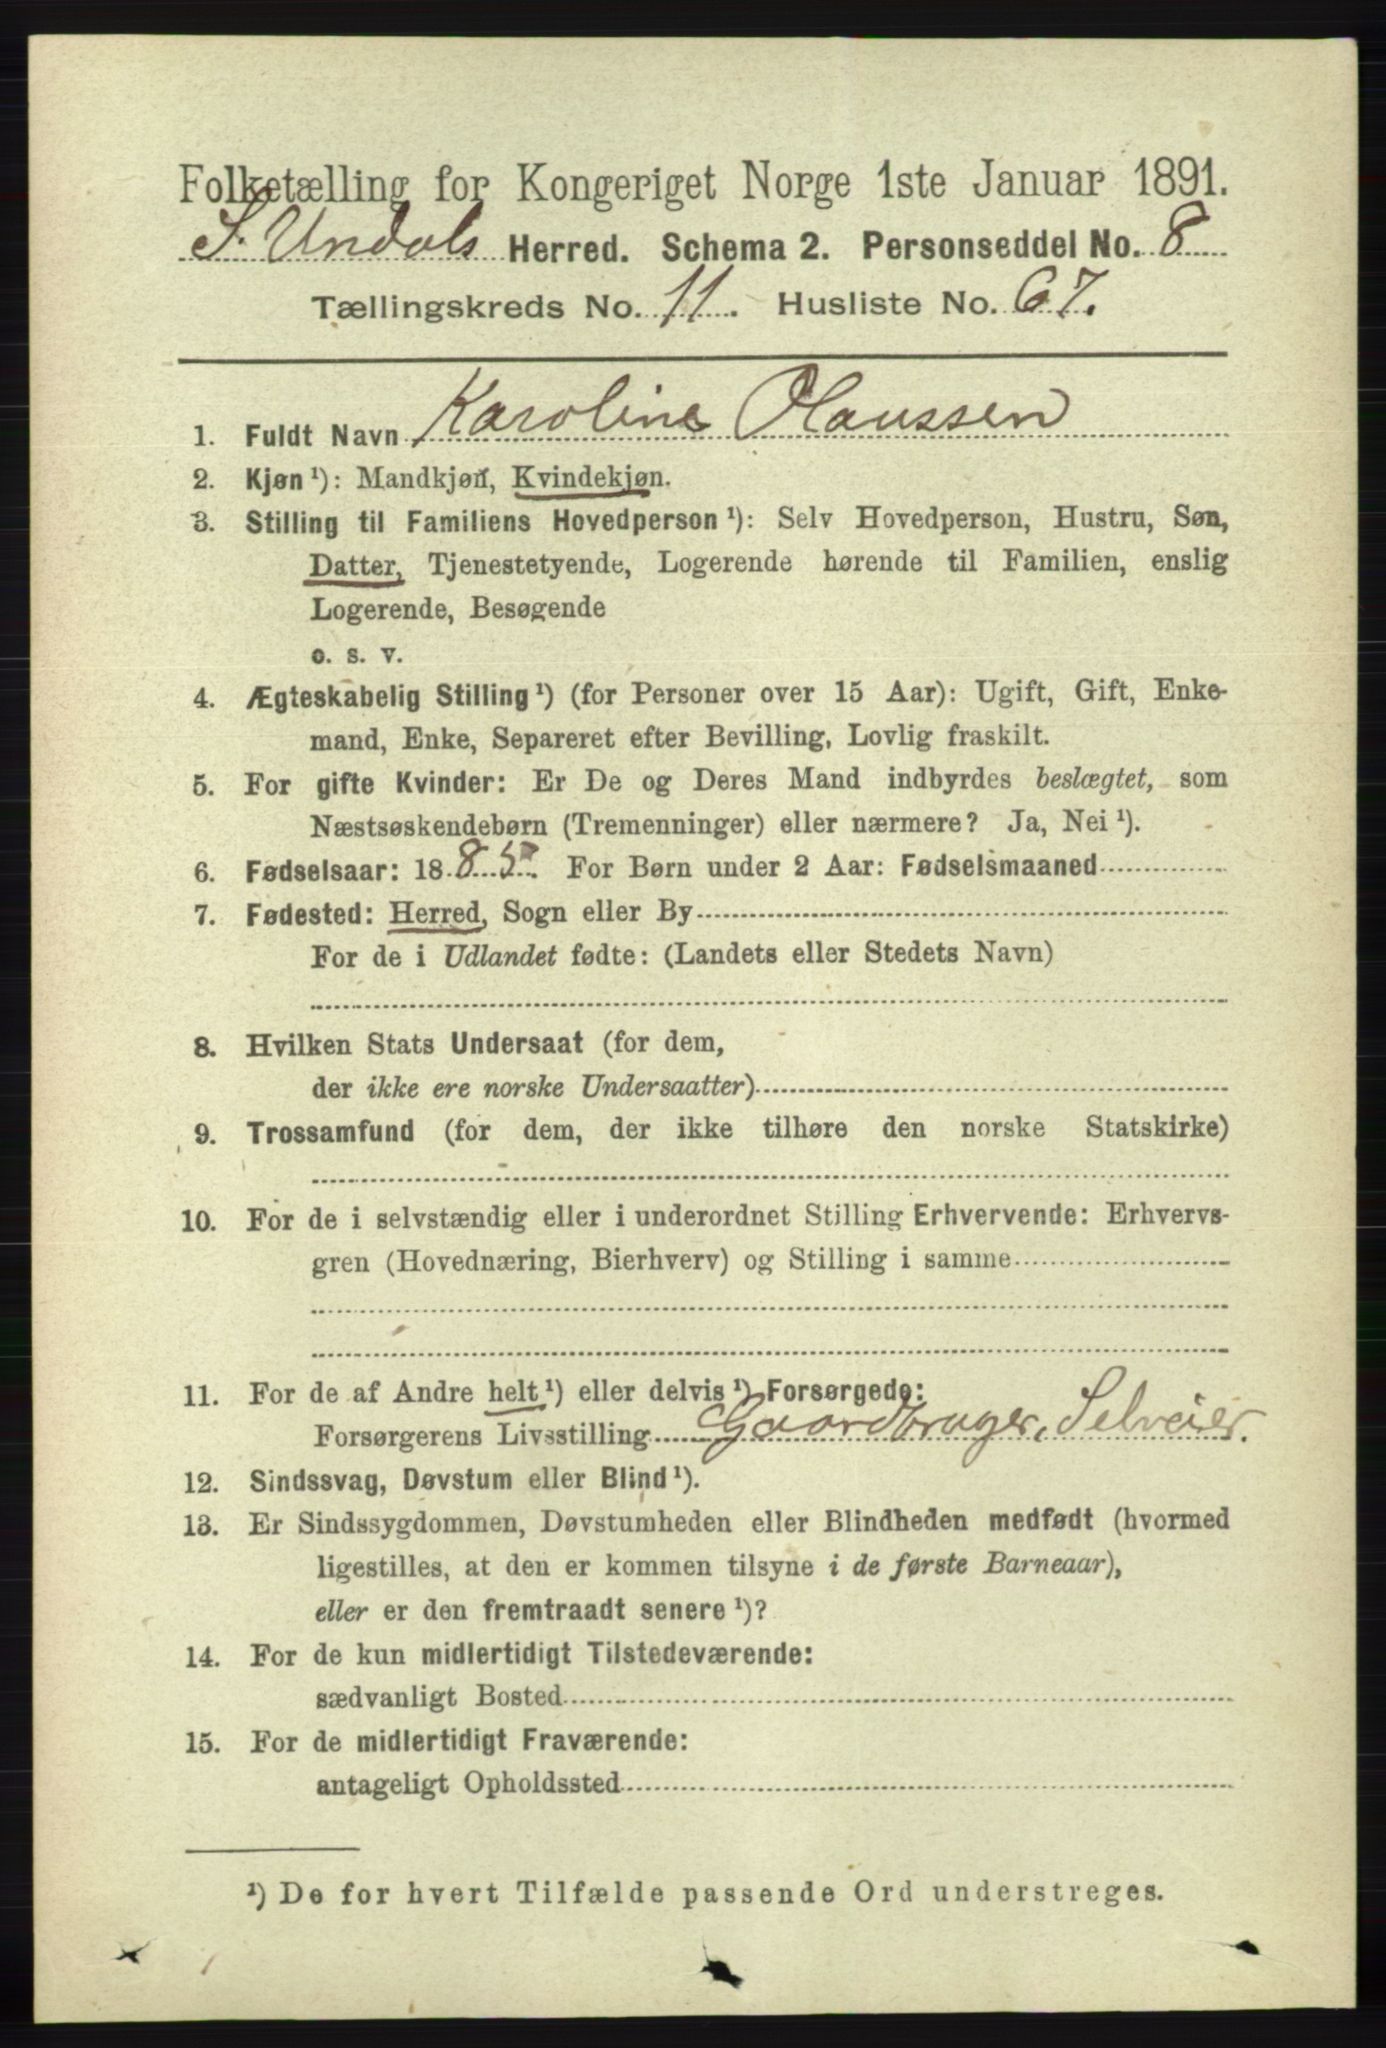 Folketælling for Kongeriget Norge 1ste Januar 1891.
S. Undals Herred. Schema 2. Personseddel No. 8
Tællingskreds No. 11. Husliste No. 67.
1. Fuldt Navn Karoline Olaussen
2. Kjøn ¹): Mandkjøn, Kvindekjøn.
3. Stilling til Familiens Hovedperson ¹): Selv Hovedperson, Hustru, Søn,
Datter, Tjenestetyende, Logerende hørende til Familien, enslig
Logerende, Besøgende
o. s. v.
4. Ægteskabelig Stilling ¹) (for Personer over 15 Aar): Ugift, Gift, Enke-
mand, Enke, Separeret efter Bevilling, Lovlig fraskilt.
5. For gifte Kvinder: Er De og Deres Mand indbyrdes beslægtet, som
Næstsøskendebørn (Tremenninger) eller nærmere? Ja, Nei ¹).
6. Fødselsaar: 1885. For Børn under 2 Aar: Fødselsmaaned
7. Fødested: Herred, Sogn eller By
For de i Udlandet fødte: (Landets eller Stedets Navn)
8. Hvilken Stats Undersaat (for dem,
der ikke ere norske Undersaatter)
9. Trossamfund (for dem, der ikke tilhøre den norske Statskirke)
10. For de i selvstændig eller i underordnet Stilling Erhvervende: Erhvervs-
gren (Hovednæring, Bierhverv) og Stilling i samme
11. For de af Andre helt ¹) eller delvis ¹) Forsørgede:
Forsørgerens Livsstilling Gaardbruger, Selveier.
12. Sindssvag, Døvstum eller Blind ¹).
13. Er Sindssygdommen, Døvstumheden eller Blindheden medfødt (hvormed
ligestilles, at den er kommen tilsyne i de første Barneaar),
eller er den fremtraadt senere ¹)?
14. For de kun midlertidigt Tilstedeværende:
sædvanligt Bosted
15. For de midlertidigt Fraværende:
antageligt Opholdssted
¹) De for hvert Tilfælde passende Ord understreges.